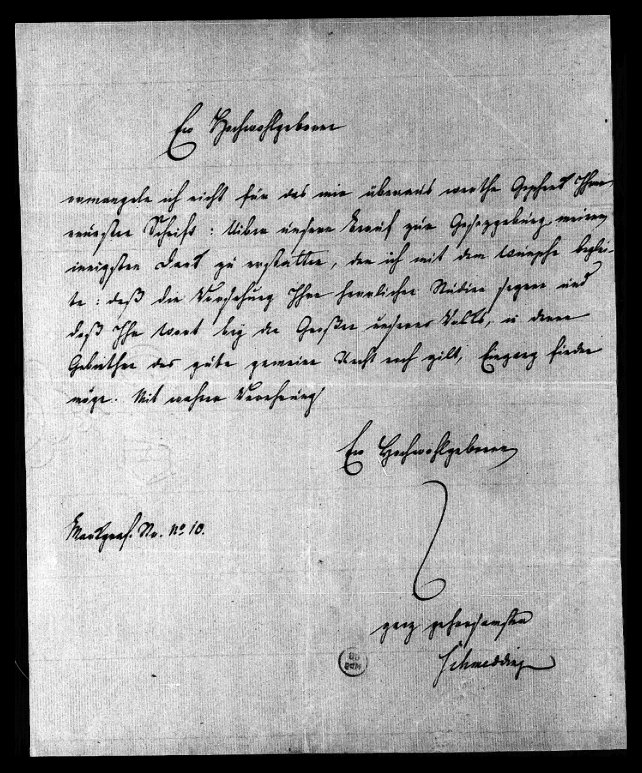 Ew Hochwohlgeboren
ermangele ich nicht für das mir überaus werthe Geschenk Ihrer
neuesten Schrift: Ueber unsern Beruf zur Gesetzgebung meinen
innigsten Dank zu erstatten, den ich mit dem Wunsche beglei-
te: daß die Vorsehung Ihre herrlichen Studien segne und
daß Ihr Wort bey den Großen unseres Volks, in deren
Gebiethe das gute gemeine Recht noch gilt, Eingang finden
möge. Mit wahrer Verehrung
Ew Hochwohlgeboren
Markgraf. Str. No 10.
ganz gehorsamster
Schmedding